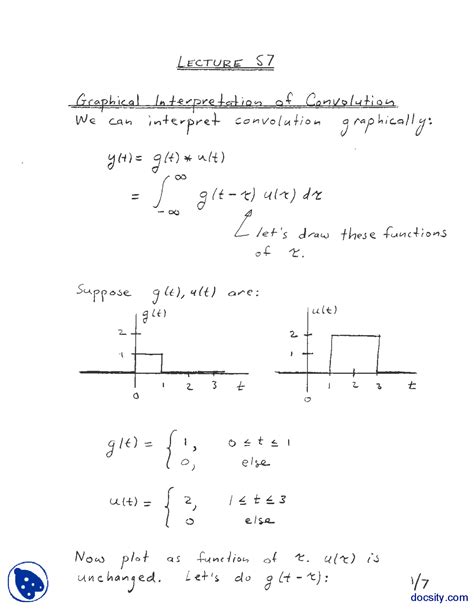 LECTURE 57
Graphical Interpretation of Convolution
We can interpret convolution graphically:
y(t) = g(t) * u(t)
= ∫_{-∞}^{∞} g(t-τ) u(τ) dτ
let's draw these functions
of τ.
Suppose g(t), u(t) are:
g(t)
2
1
0 1 2 3 t
u(t)
2
1
0 1 2 3 t
g(t) = { 1, 0 ≤ t ≤ 1
0, else
u(t) = { 2, 1 ≤ t ≤ 3
0 else
Now plot as function of τ. u(τ) is
unchanged. Let's do g(t-τ):
1/7
docsity.com